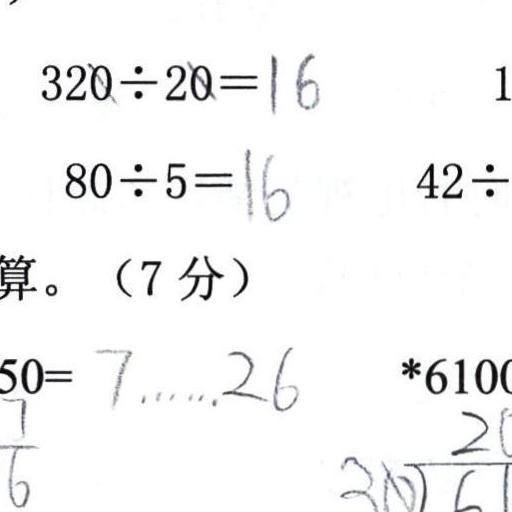 320÷20=16 1
80÷5=16 42÷
算。（7 分）
50= 7……26 *6100
7 20
6 30) 61